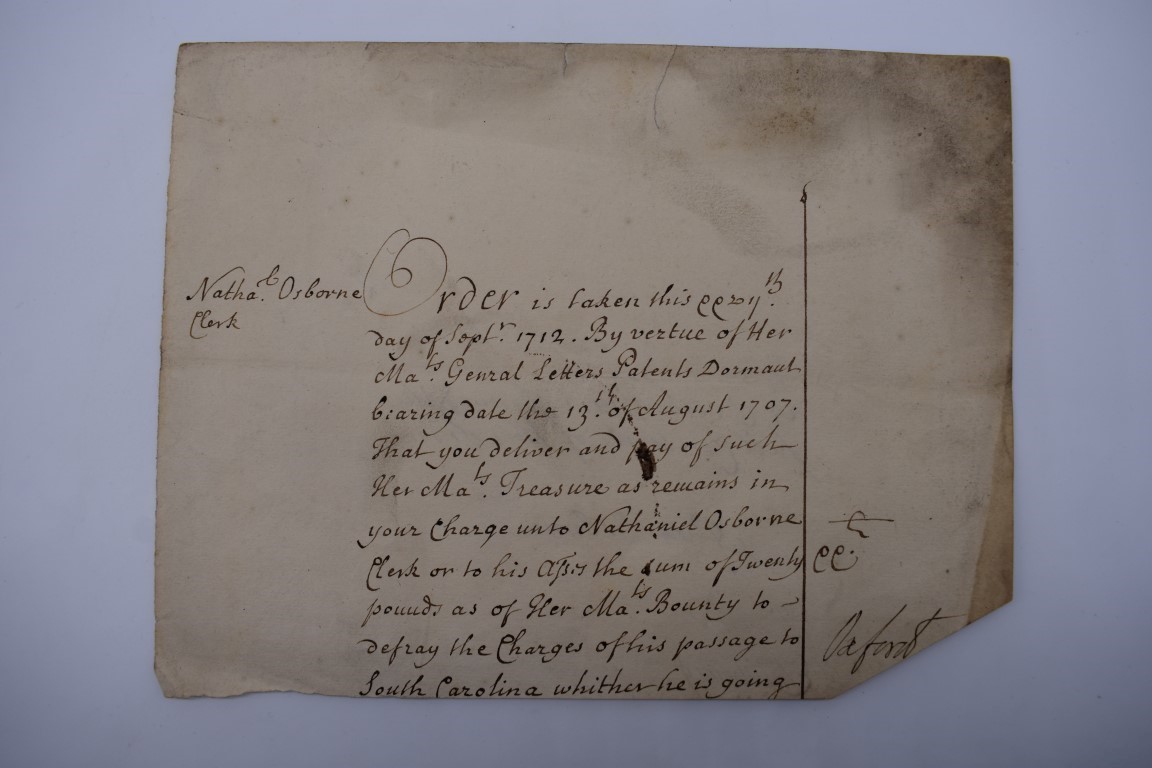 Natha.ˡ Osborne
Clerk
Order is taken this xxvjᵗʰ.
day of Septʳ. 1712. By vertue of Her
Maᵗˢ. Genral Letters Patents Dormant
bearing date the 13ᵗʰ. of August 1707.
That you deliver and pay of such
Her Maᵗˢ. Treasure as remains in
your Charge unto Nathaniel Osborne
Clerk or to his Assˢ the sum of Twenty
pounds as of Her Maᵗˢ. Bounty to
defray the Charges of his passage to
South Carolina whither he is going
£
xx.
Oxford